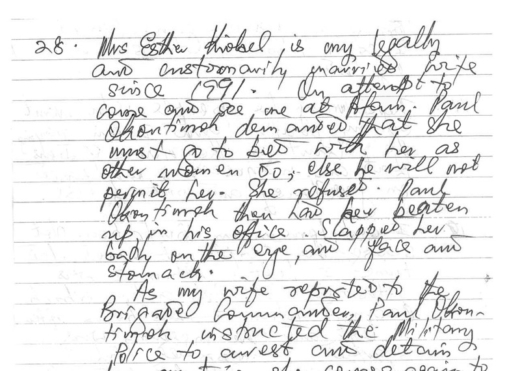 28. Mrs Esther Kiobel, is my legally
and customarily married wife
since 1991. On attempt to
come and see me at Afam. Paul
Okontimoh demanded that she
must go to bed with her as
other women do, else he will not
permit her. She refused. Paul
Okontimoh then had her beaten
up in his office. Slapped her
badly on the eye, and face and
stomach.
As my wife reported to the
Brigade Commander, Paul Okon-
timoh instructed the Military
Police to arrest and detain